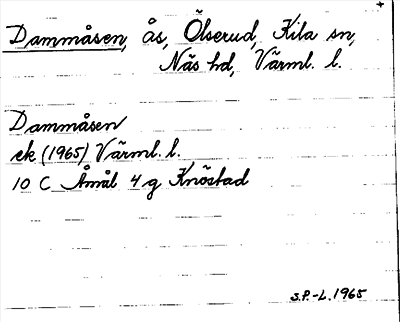 Dammåsen, ås, Ölserud, Kila sn,
Näs hd, Värml. l.
Dammåsen
ek (1965) Värml. l.
10 C Åmål 4 g Knöstad
S.P.-L. 1965